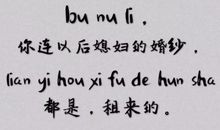 bu nu li，
你连以后媳妇的婚纱，
lian yi hou xi fu de hun sha
都是，租来的。